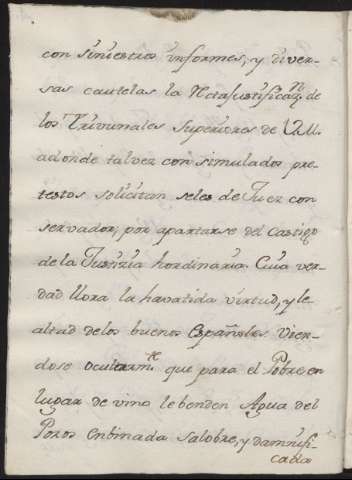 con siniestros informes, y diver-
sas cautelas la Rectajustificaz.n de
los Trivunales Superiores de V.M.
adonde talvez con simulados pre-
testos solicitan seles de Juez con
servador, por apartarse del castigo
de la Justizia hordinaria. Cuia ver-
dad llora la havatida virtud, y le-
altad delos buenos Españoles Vien-
dose ocularm.te que para el Pobre en
lugar de vino le benden Agua del
Pozos enbinada salobre, y damnifi-
cada